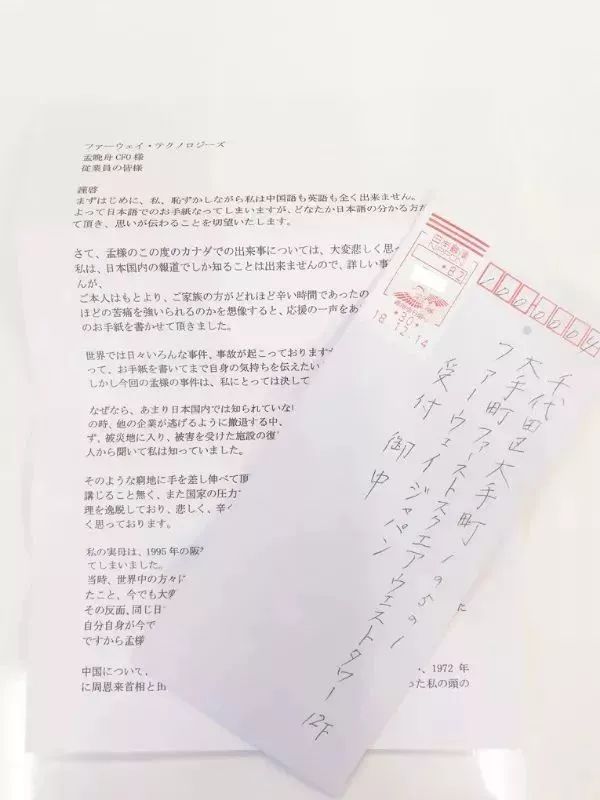 ファーウェイ・テクノロジーズ
孟晩舟 CFO 様
従業員の皆様
謹啓
まずはじめに、私、恥ずかしながら私は中国語も英語も全く出来ません。
よって日本語でのお手紙なってしまいますが、どなたか日本語の分かる方だ
て頂き、思いが伝わることを切望いたします。
さて、孟様のこの度のカナダでの出来事については、大変悲しく思っ
私は、日本国内の報道でしか知ることは出来ませんので、詳しい事
んが、
ご本人はもとより、ご家族の方がどれほど辛い時間であったの
ほどの苦痛を強いられるのかを想像すると、応援の一声をあ
のお手紙を書かせて頂きました。
世界では日々いろんな事件、事故が起こっております
って、お手紙を書いてまで自身の気持ちを伝えたい
しかし今回の孟様の事件は、私にとっては決して
なぜなら、あまり日本国内では知られていない
の時、他の企業が逃げるように撤退する中、
ず、被災地に入り、被害を受けた施設の復
人から聞いて私は知っていました。
そのような窮地に手を差し伸べて頂
講じること無く、また国家の圧力
理を逸脱しており、悲しく、辛く
く思っております。
私の実母は、1995 年の阪
てしまいました。
当時、世界中の方々に
たこと、今でも大変
その反面、同じ日
自分自身が今で
ですから孟様
中国について、
に周恩来首相と
、1972 年
った私の頭の
日本郵便
NIPPON
82
+30+
18.12.14
1000004
千代田区大手町
大手町ファーストスクエアウエストタワー 12F
ファーウェイジャパン
受付 御中